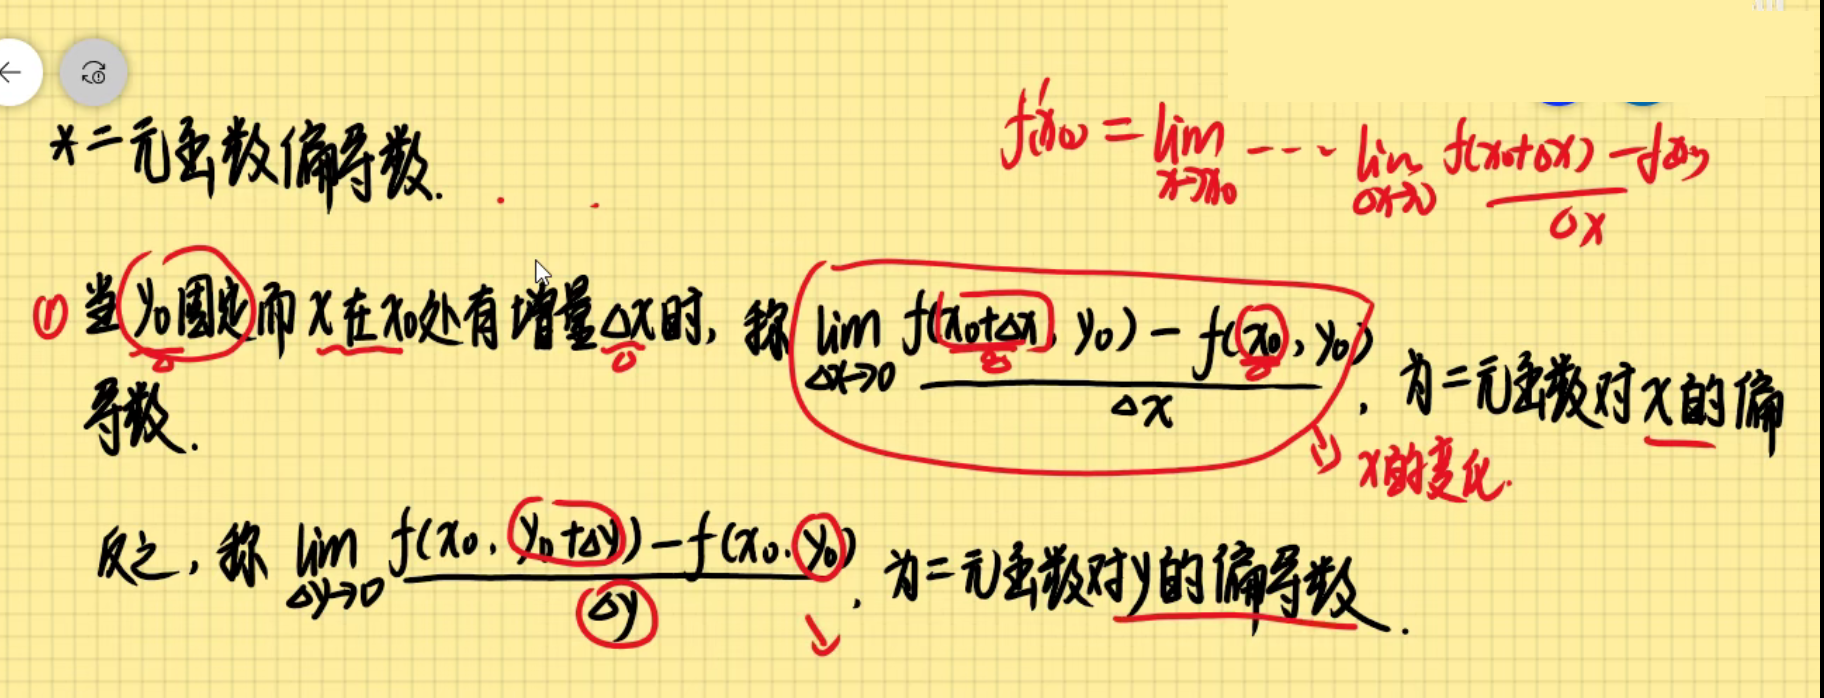 *二元函数偏导数.
f'(x₀) = lim x→x₀ --- lim Δx→0 f(x₀+Δx) - f(x₀) / Δx
① 当 y₀固定而 x 在 x₀处有增量Δx时, 称 lim Δx→0 f(x₀+Δx, y₀) - f(x₀, y₀) / Δx , 为二元函数对 x 的偏
导数.
x的变化.
反之, 称 lim Δy→0 f(x₀, y₀+Δy) - f(x₀, y₀) / Δy , 为二元函数对y的偏导数.